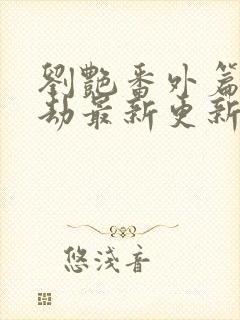 劉艷番外篇
劫最新更新
悠淺音